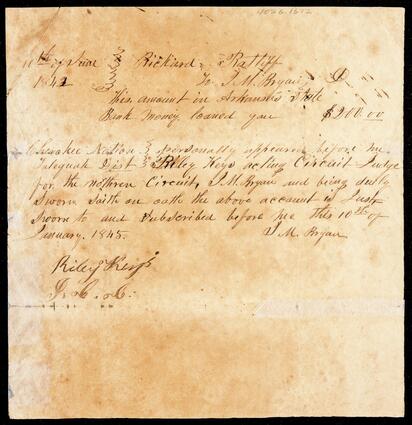 4026.1672
11th of June Richard Ratliff
1842 To J. M. Bryan, D
This amount in Arkansas State
Bank money loaned you $200.00
Cherokee Nation } personally appeared before me
Talequah Dist } Riley Keys acting Circuit Judge
for the nothren Circuit, J. M. Bryan and being duly
sworn saith on oath the above account is Just
Sworn to and Subscribed before me this 10th of
January. 1845. J. M. Bryan
Riley Keys